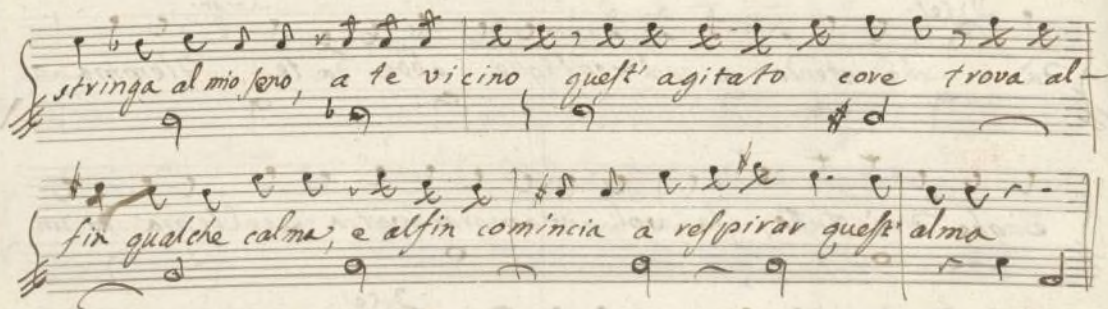 stringa al mio ſeno, a te vicino queſt' agitato core trova al-
fin qualche calma, e alfin comincia a reſpirar queſt' alma